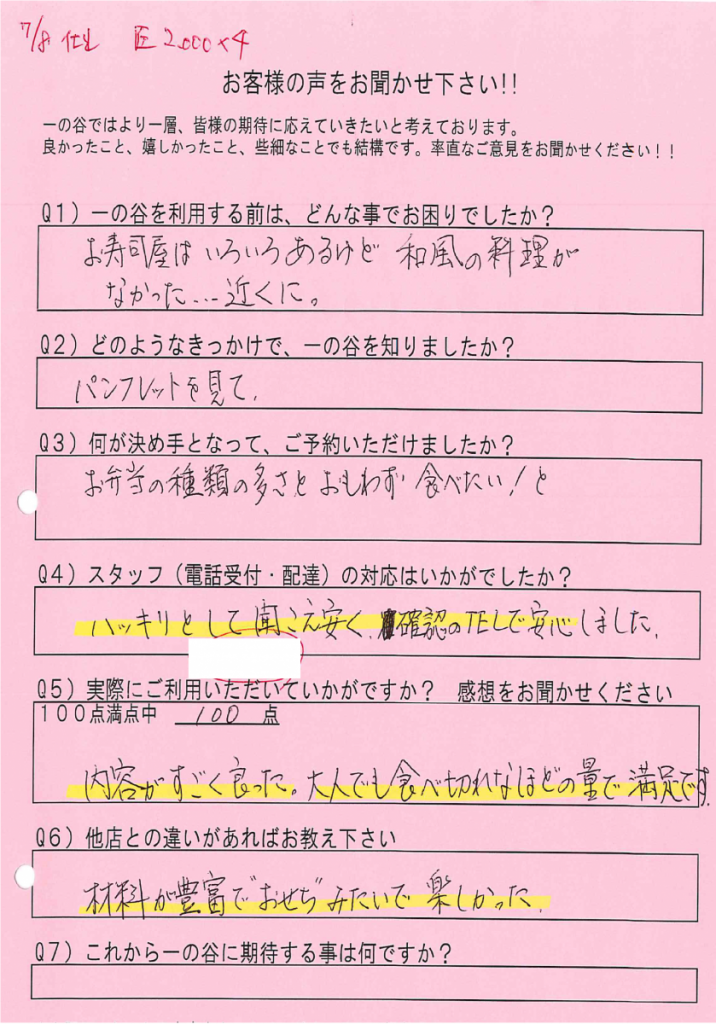 7/8 仕出 匠2,000×4
お客様の声をお聞かせ下さい!!
一の谷ではより一層、皆様の期待に応えていきたいと考えております。
良かったこと、嬉しかったこと、些細なことでも結構です。率直なご意見をお聞かせください！！
Q1）一の谷を利用する前は、どんな事でお困りでしたか？
お寿司屋はいろいろあるけど 和風の料理が
なかった…近くに。
Q2）どのようなきっかけで、一の谷を知りましたか？
パンフレットを見て.
Q3）何が決め手となって、ご予約いただけましたか？
お弁当の種類の多さと おもわず 食べたい！と
Q4）スタッフ（電話受付・配達）の対応はいかがでしたか？
ハッキリとして聞こえ安く、確認のTELで安心しました.
Q5）実際にご利用いただいていかがですか？ 感想をお聞かせください
100点満点中 100 点
内容がすごく良った。大人でも食べ切れなほどの量で満足です.
Q6）他店との違いがあればお教え下さい
材料が豊富で"おせち"みたいで 楽しかった.
Q7）これから一の谷に期待する事は何ですか？